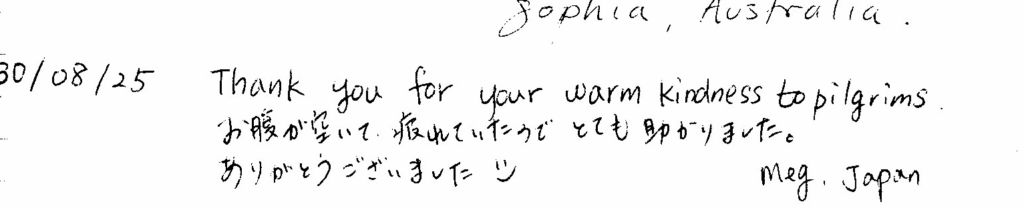 Sophia, Australia.
30/08/25 Thank you for your warm kindness to pilgrims.
お腹が空いて、疲れていたので とても助かりました。
ありがとうございました ツ
Meg. Japan